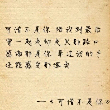 可惜不是你 陪我到最后
曾一起走 却走失那路口
感谢那是你 牵过我的手
还能感受那温柔
——《可惜不是你》